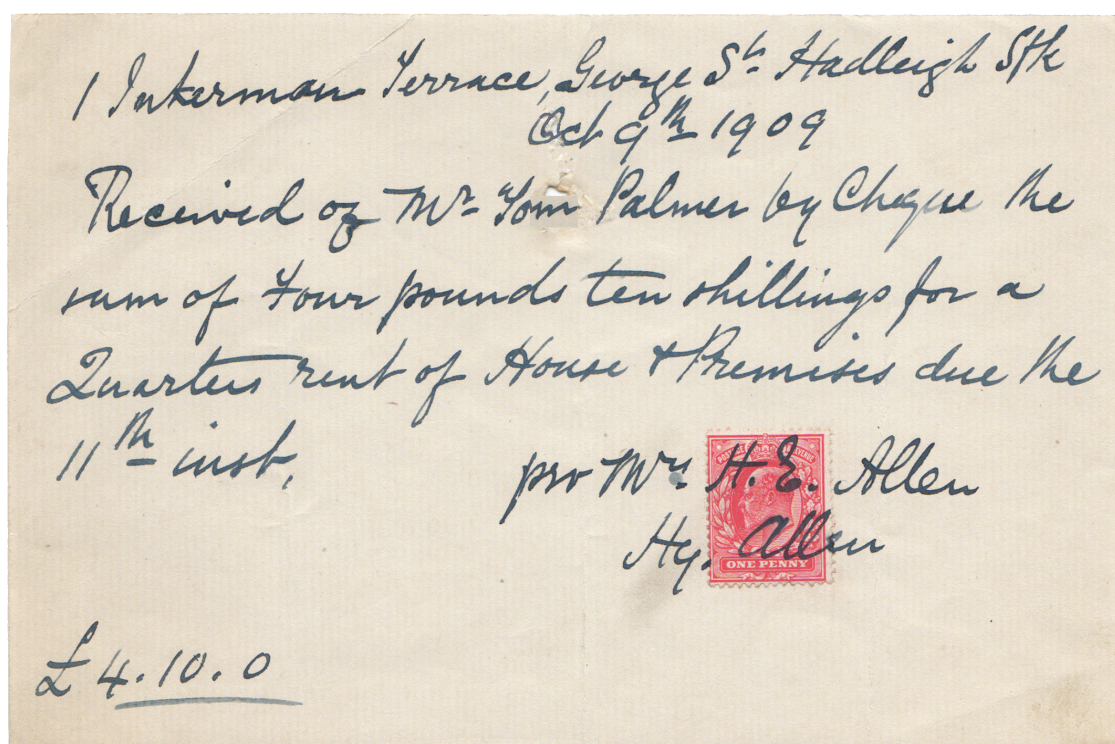 1 Inkerman Terrace, George St. Hadleigh Sfk
Oct 9th 1909
Received of Mr Tom Palmer by Cheque the
sum of Four pounds ten shillings for a
Quarters rent of House & Premises due the
11th inst,
pro Mrs H. E. Allen
Hy. Allen
POSTAGE REVENUE
ONE PENNY
£4.10.0